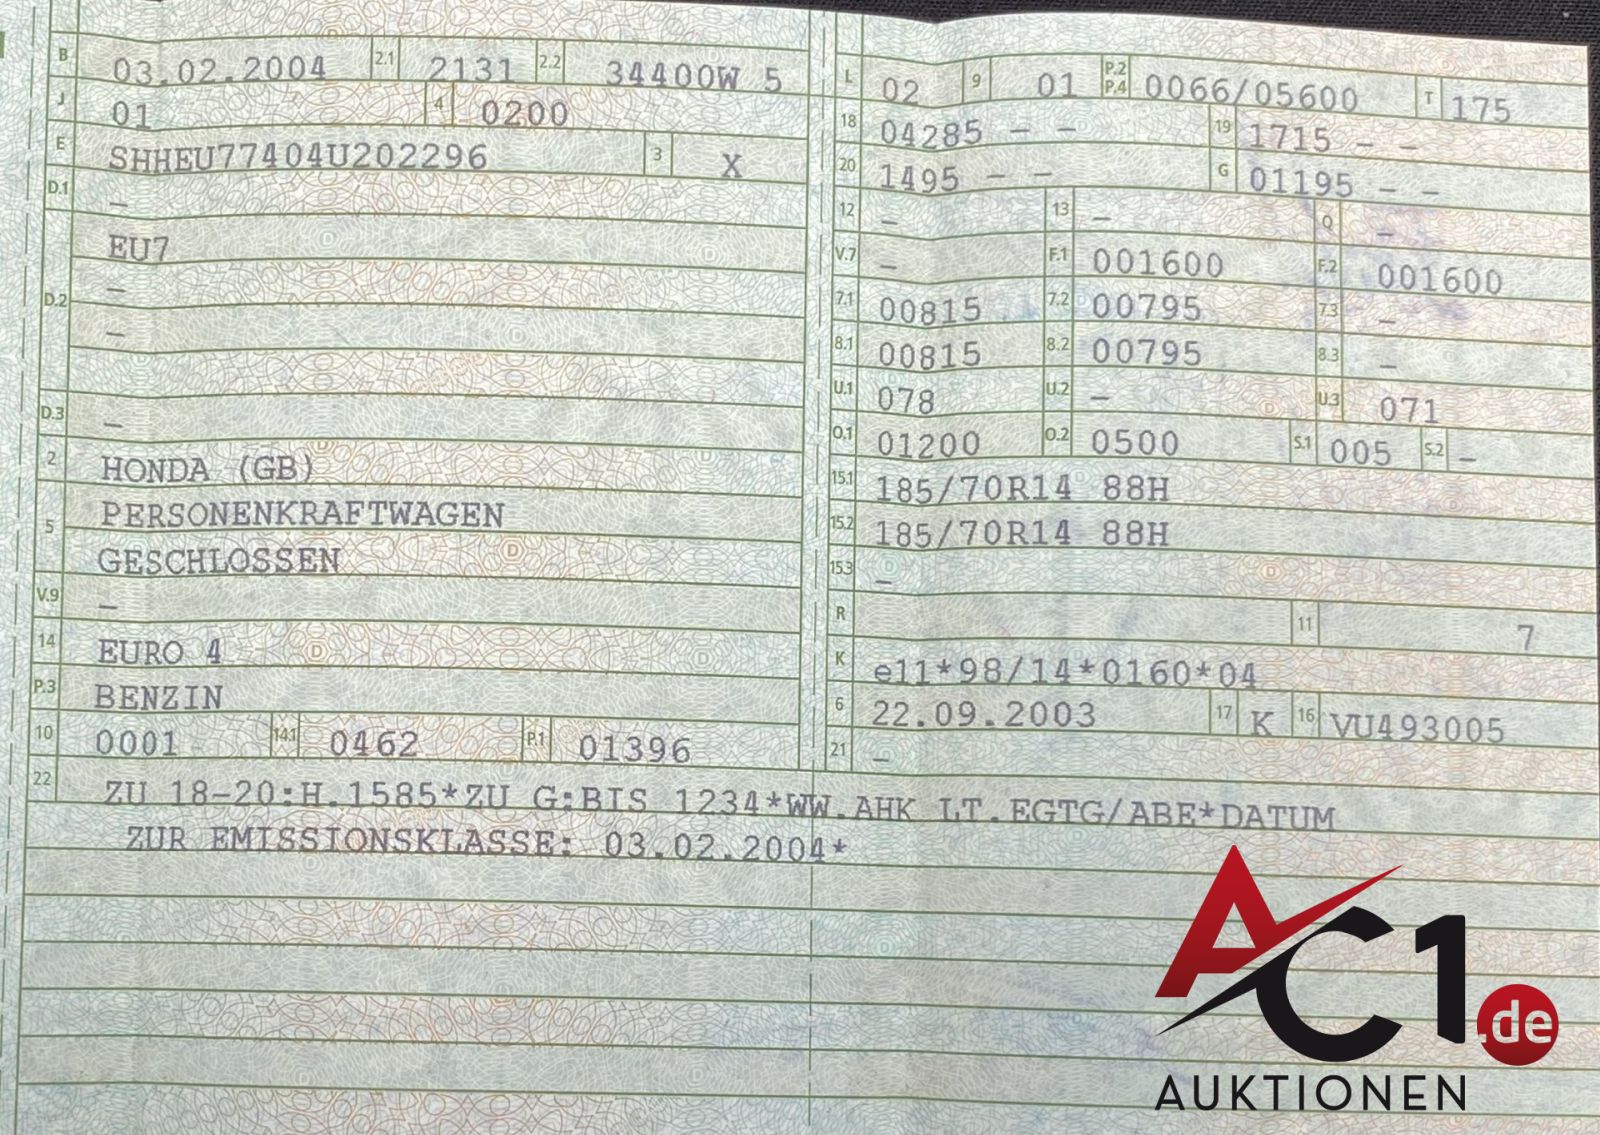 B 03.02.2004 2.1 2131 2.2 34400W 5
J 01 4 0200
E SHHEU77404U202296 3 X
D.1 –
D.2 EU7
–
–
D.3 –
2 HONDA (GB)
5 PERSONENKRAFTWAGEN
GESCHLOSSEN
V.9 –
14 EURO 4
P.3 BENZIN
10 0001 14.1 0462 P.1 01396
L 02 9 01 P.2 P.4 0066/05600 T 175
18 04285 – – 19 1715 – –
20 1495 – – G 01195 – –
12 – 13 – Q –
V.7 – F.1 001600 F.2 001600
7.1 00815 7.2 00795 7.3 –
8.1 00815 8.2 00795 8.3 –
U.1 078 U.2 – U.3 071
O.1 01200 O.2 0500 S.1 005 S.2 –
15.1 185/70R14 88H
15.2 185/70R14 88H
15.3 –
R 11 7
K e11*98/14*0160*04
6 22.09.2003 17 K 16 VU493005
21 –
22 ZU 18-20:H.1585*ZU G:BIS 1234*WW.AHK LT.EGTG/ABE*DATUM
ZUR EMISSIONSKLASSE: 03.02.2004*
AC1.de
AUKTIONEN